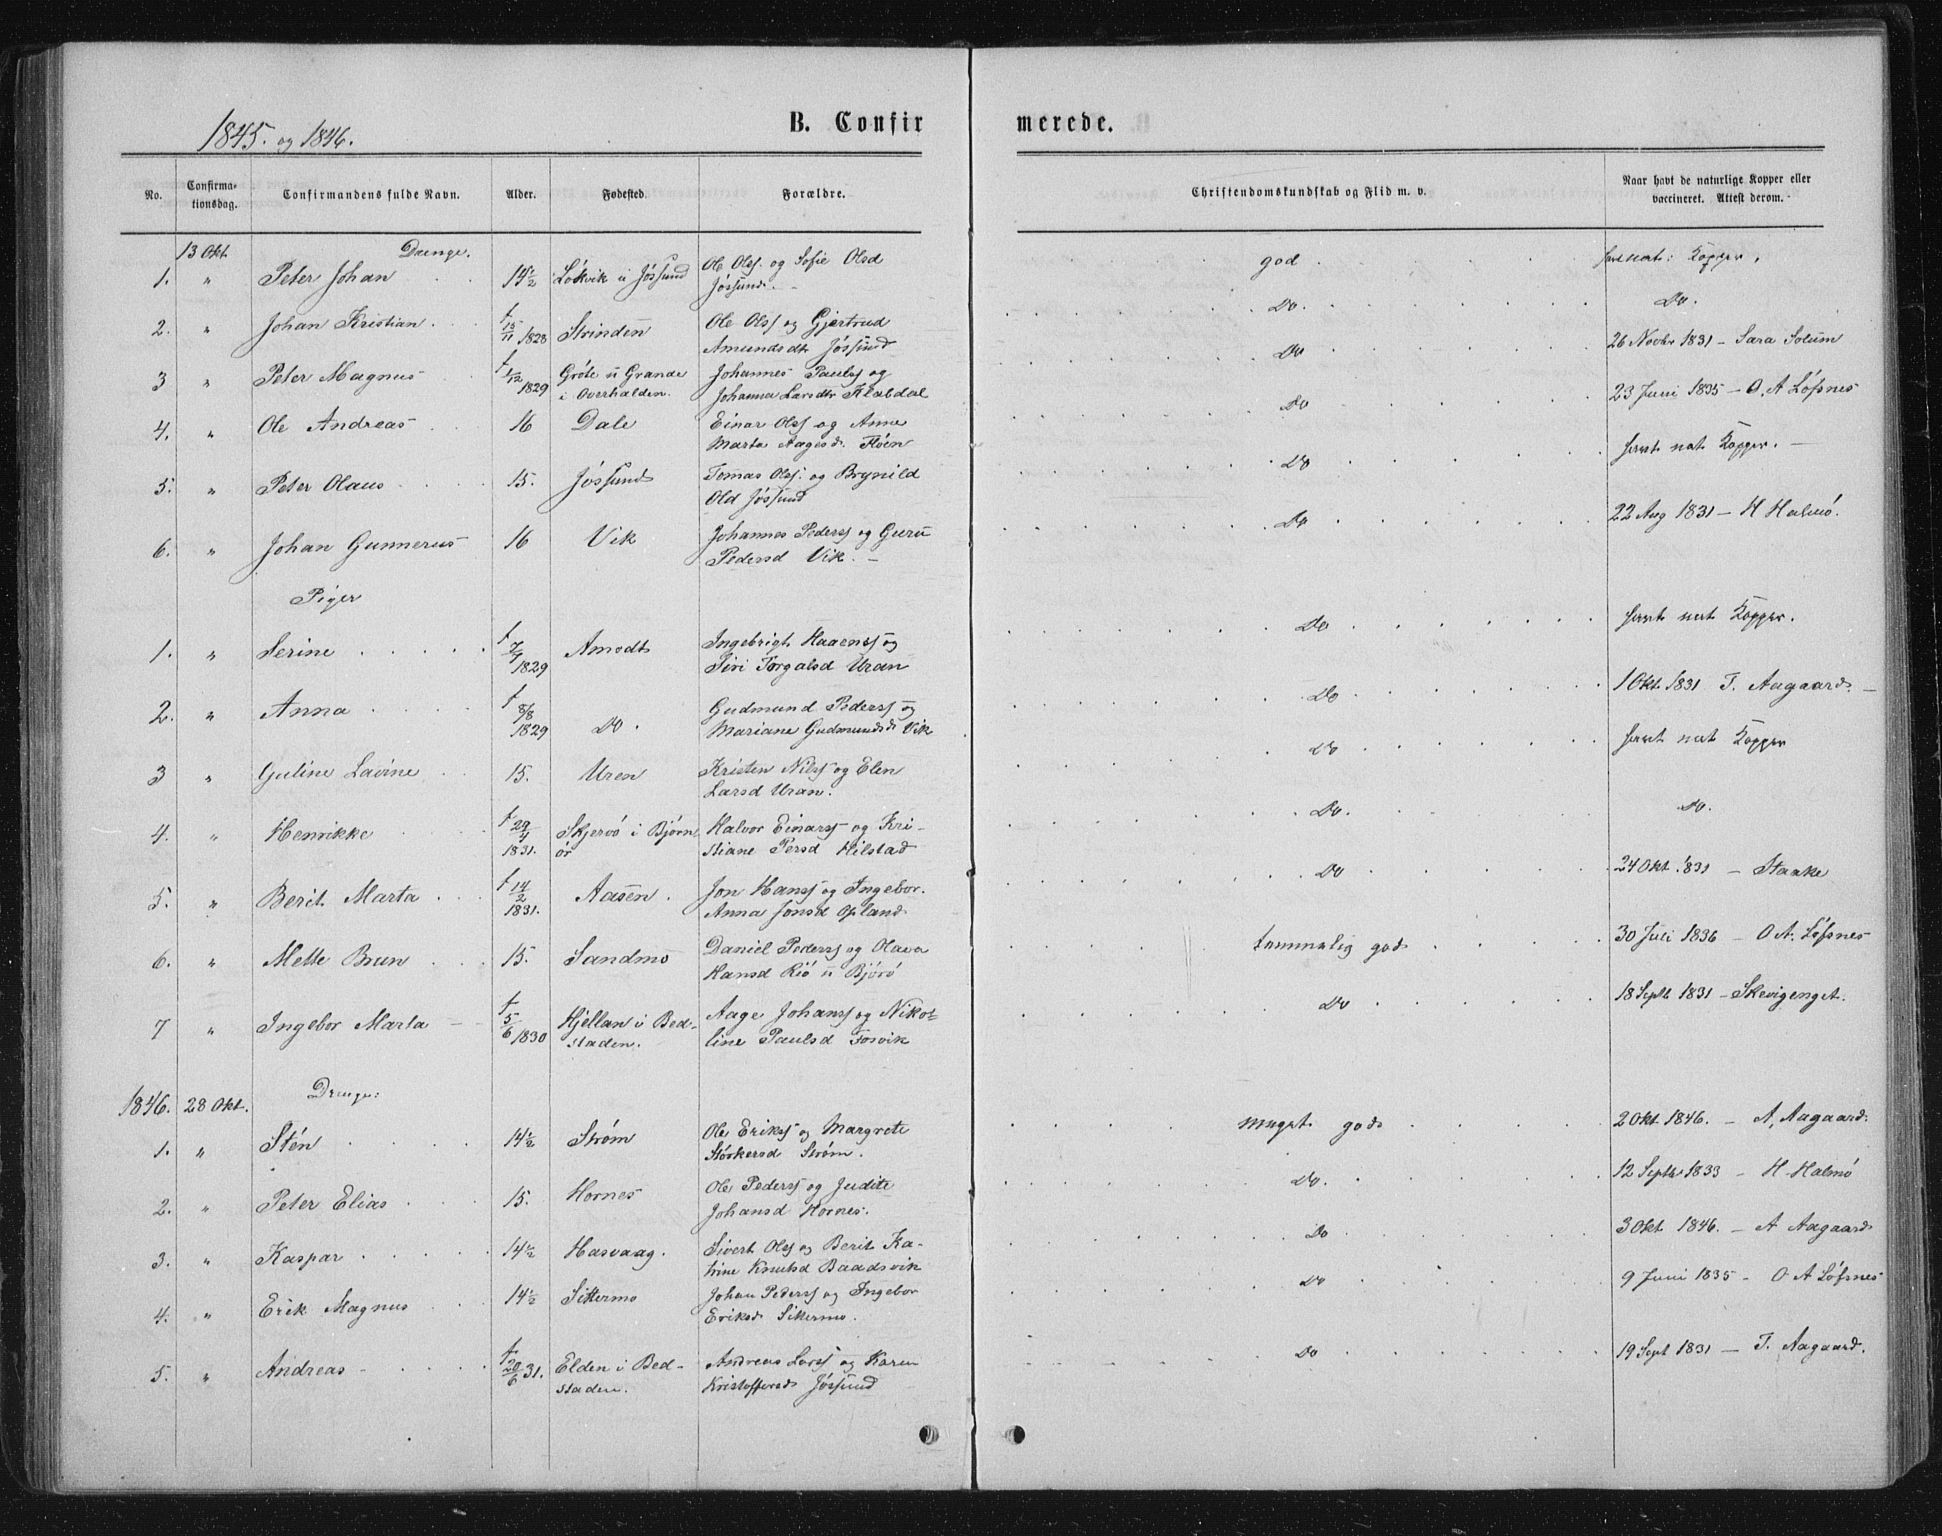 1845. og 1846.
B. Confirmerede.
No. Confirmationsdag. Confirmandens fulde Navn. Alder. Fødested. Forældre. Christendomskundskab og Flid m. v. Naar havt de naturlige Kopper eller vaccineret. Attest derom.
13 Okt. Drenge.
1. " Peter Johan 14½ Løkvik u Jøssund Ole Olsf. og Sofie Olsd Jøssund. god havt nat: Kopper.
2. " Johan Kristian f 15/11 1828 Strinden Ole Olsf og Gjertrud Amundsdt Jøssund Do. Do.
3 " Peter Magnus f 1/12 1829 Gröte u Grande i Overhalden. Johannes Paulsf og Johanna Larsdtr Flabdal Do 26 Novbr 1831 - Sara Solum
4. " Ole Andreas 16 Dale Einar Olsf og Anne Marta Aagesd. Fløen Do 23 Juni 1835 - O. A Løfsnes
5. " Peter Olaus 15. Jøssund Tomas Olsf. og Brynild Olsd Jøssund Do havt nat Kopper. -
6. " Johan Gunnerus 16 Vik Johannes Pedersf og Guru Pedersd Vik. - Do 22 Aug 1831 - H Halmø.
Piger
1. " Serine f 7/9 1829 Amodt Ingebrigt Haaensf og Siri Torgalsd Uran Do havt nat Kopper.
2. " Anna f 8/8 1829 Do. Gudmund Pedersf og Mariane Gudmundsd. Vik Do 1 Okt. 1831 T. Aagaard. -
3 " Guline Lavine 15. Uren Kristen Nilsf og Elen Larsd Uran. Do havt nat Kopper
4. " Henrikke f 29/4 1831. Skjervö i Björnör Halvor Einarsf og Kristiane Persd Hilstad Do. Do.
5. " Berit Marta f 14/2 1831. Aasen. Jon Hansf og Ingebor. Anna Jonsd Opland Do 24 Okt. 1831 - Staake
6. " Mette Brun 15. Sandmo Daniel Pedersf og Olava Hansd Riö u Björö temmelig god 30 Juli 1836 - O A. Løfsnes
7 " Ingebor Marta - f 5/6 1830 Hjellan i Bedstaden. Aage Johansf og Nikoline Paulsd Fosvik Do 18 Septb 1831 - Skevigenget.
1846. 28 Okt. Drenge:
1. " Stén 14½ Strøm Ole Eriksf og Margrete Störkersd Strøm. meget god 2 Okt 1846. - A. Aagaard.
2. " Peter Elias 15. Hornes Ole Pedersf og Judite Johansd Hornes. Do. 12 Septb 1833 - H Halmö
3. " Kaspar 14½ Hasvaag. Sivert Olsf og Berit Katrine Knutsd Baadsvik Do 3 Okt 1846. - A Aagaard
4. " Erik Magnus 14½ Sittermo Johan Pedersf og Ingebor Eriksd Sitermo. Do 9 Juni 1835 - O A Løfsnes
5. " Andreas - f 20/6 31. Elden i Bedstaden. Andreas Larsf og Karen Kristoffersd Jøssund Do 19 Sept 1831 - T. Aagaard.